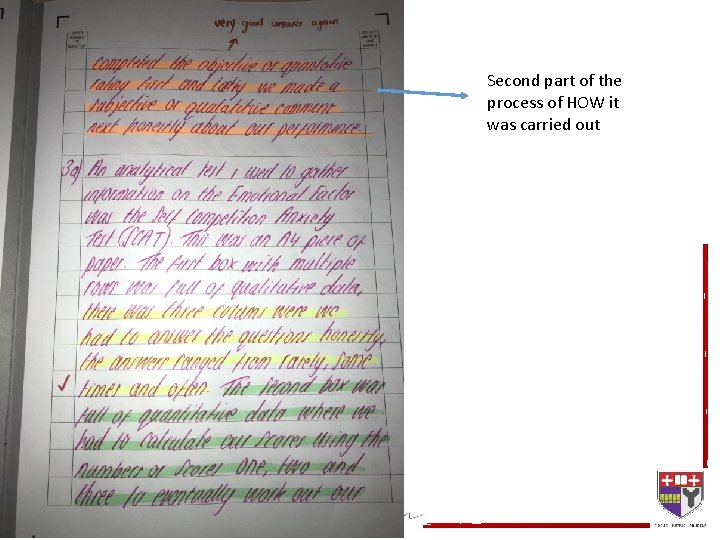 very good answer again
completed the objective or quantative
rating first and lastly we made a
subjective or qualatitive comment
next honestly about our performance.
3a) An analytical test I used to gather
information on the Emotional Factor
was the Self Competition Anxiety
Test (SCAT). This was an A4 piece of
paper. The first box with multiple
rows was full of qualitative data,
there was three columns were we
had to answer the questions honestly,
the answers ranged from rarely, some
times and often. The second box was
full of quantitative data where we
had to calculate our scores using the
numbers or scores one, two and
three to eventually work out our
Second part of the
process of HOW it
was carried out